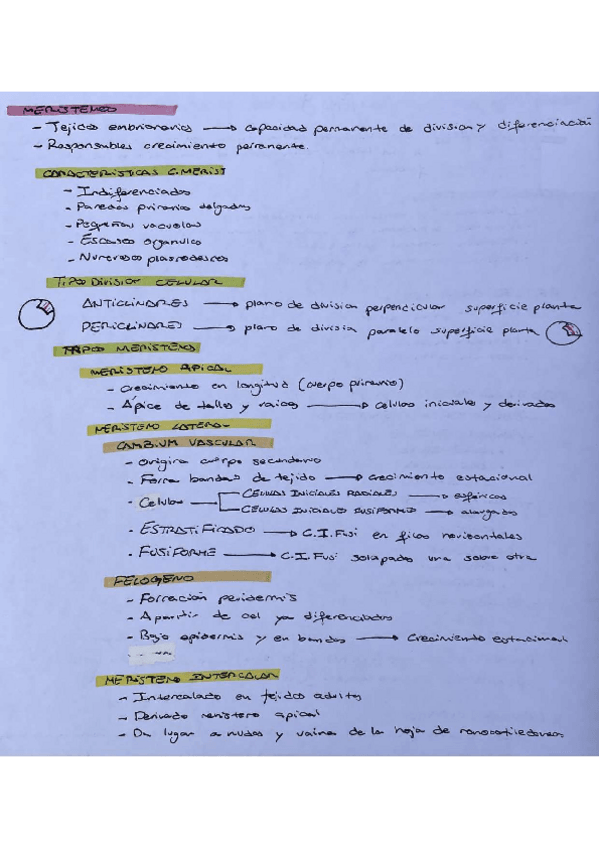 MERISTEMOS
- Tejidos embrionarios → capacidad permanente de division y diferenciación
- Responsables crecimiento permanente.
CARACTERISTICAS C. MERIST
- Indiferenciados
- Paredes primarias delgadas
- Pequeñas vacuolas
- Escasos organulos
- Numerosos plasmodesmos
TIPOS DIVISION CELULAR
ANTICLINARES → plano de division perpendicular superficie planta
PERICLINARES → plano de division paralelo superficie planta
TIPOS MERISTEMO
MERISTEMO APICAL
- Crecimiento en longitud (cuerpo primario)
- Ápice de tallos y raices → celulas iniciales y derivadas
MERISTEMO LATERAL
CAMBIUM VASCULAR
- Origina cuerpo secundario
- Forma bandas de tejido → crecimiento estacional
- Celulas
CELULAS INICIALES RADIALES → esféricas
CELULAS INICIALES FUSIFORMES → alargadas
- ESTRATIFICADO → C.I.Fusi en filas horizontales
- FUSIFORME → C.I.Fusi solapadas una sobre otra
FELOGENO
- Formación peridermis
- A partir de cel ya diferenciadas
- Bajo epidermis y en bandas → Crecimiento estacional
MERISTEMO INTERCALAR
- Intercalado en tejidos adultos
- Derivado meristemo apical
- Da lugar a nudos y vaina de la hoja de monocotiledoneas